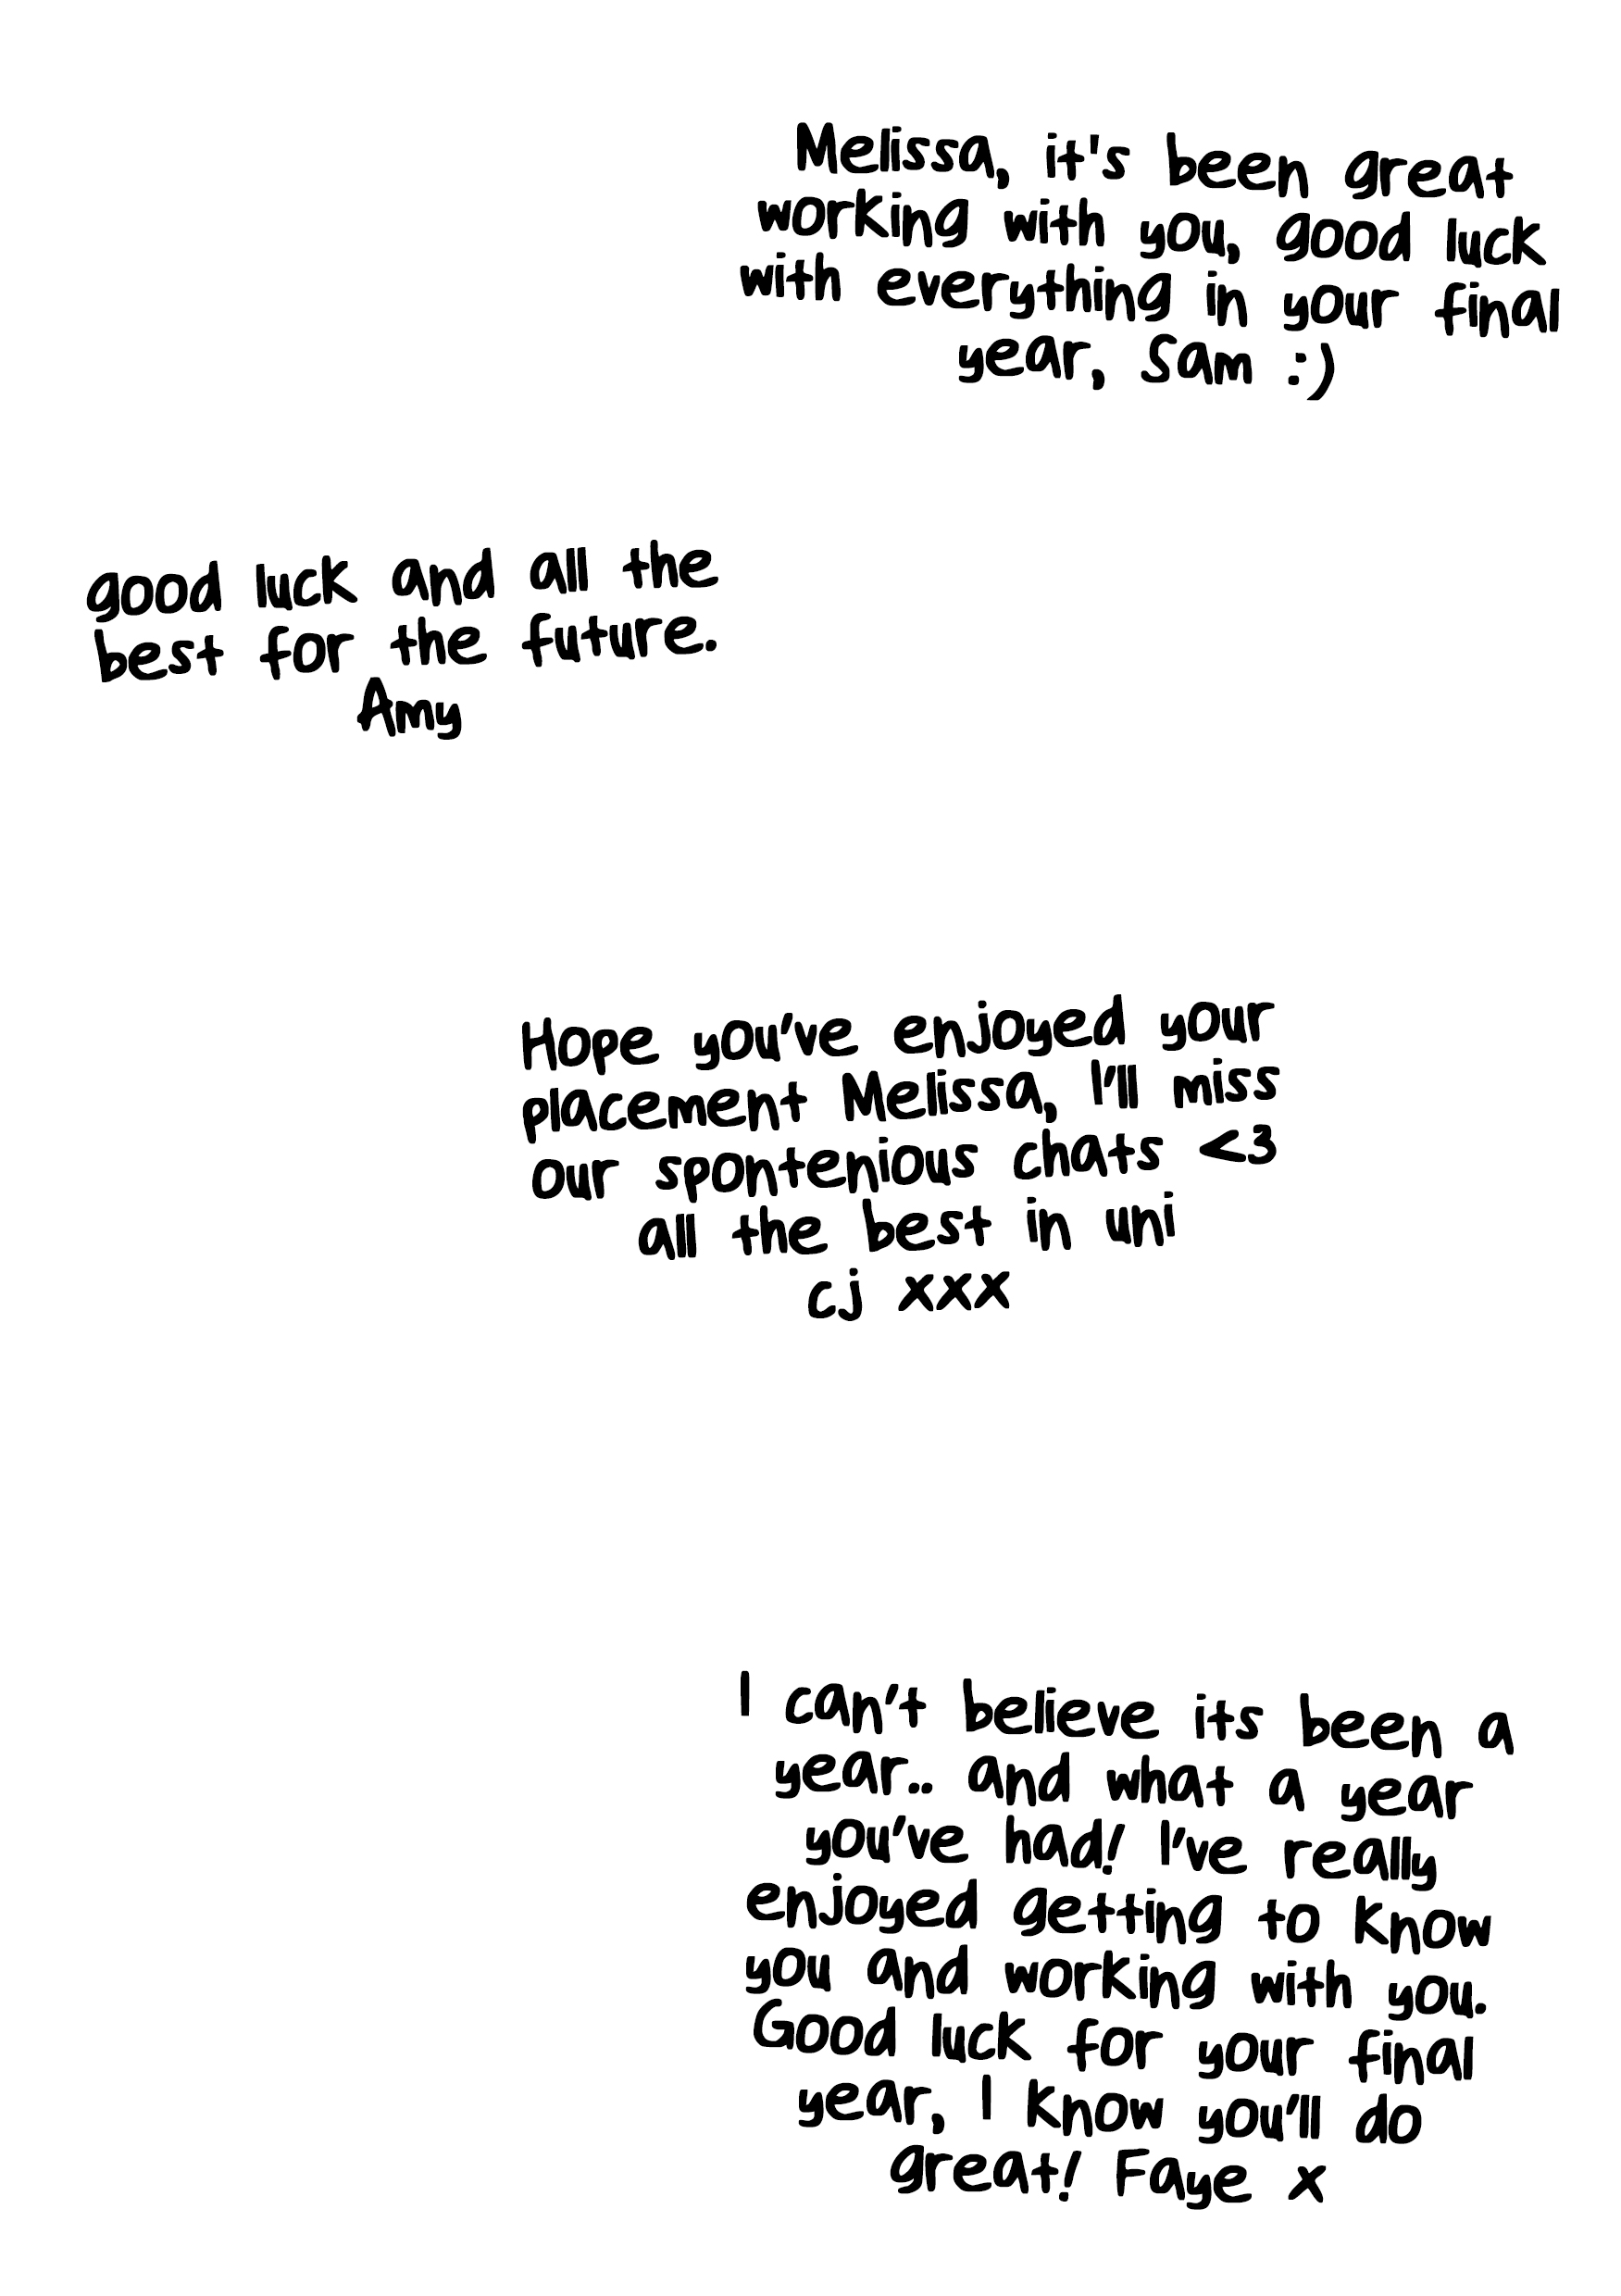 Melissa, it's been great
working with you, good luck
with everything in your final
year, Sam :)
good luck and all the
best for the future.
Amy
Hope you've enjoyed your
placement Melissa, I'll miss
our spontenious chats <3
all the best in uni
cj xxx
I can't believe its been a
year.. and what a year
you've had! I've really
enjoyed getting to know
you and working with you.
Good luck for your final
year, I know you'll do
great! Faye x